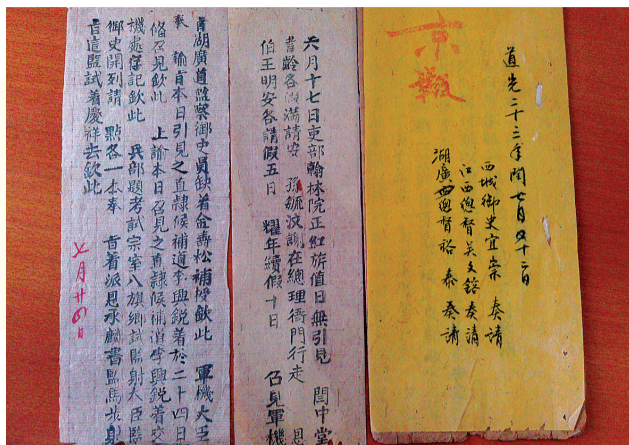 京報
道光二十三年閏七月二十二日
西城御史宜崇　奏請
江西總督吴文鎔奏請
湖廣總督裕　泰　奏請
六月十七日吏部翰林院正紅旂值日無引見　閻中堂
耆齡各假滿請安　孫毓汶謝在總理衙門行走　恩
伯王明安各請假五日　耀年續假十日　召見軍機
旨湖廣道監察御史員缺着金壽松補授欽此　軍機大臣
奉　諭旨本日引見之直隸候補道李興銳着於二十四日
俻召見欽此　上諭本日召見之直隸候補道李興銳着交
機處存記欽此　兵部題考試宗室八旗鄉試監射大臣監
御史開列請　點各一本奉　旨着派恩承麟書監馬步射
旨這監試着慶祥去欽此
七月廿四日